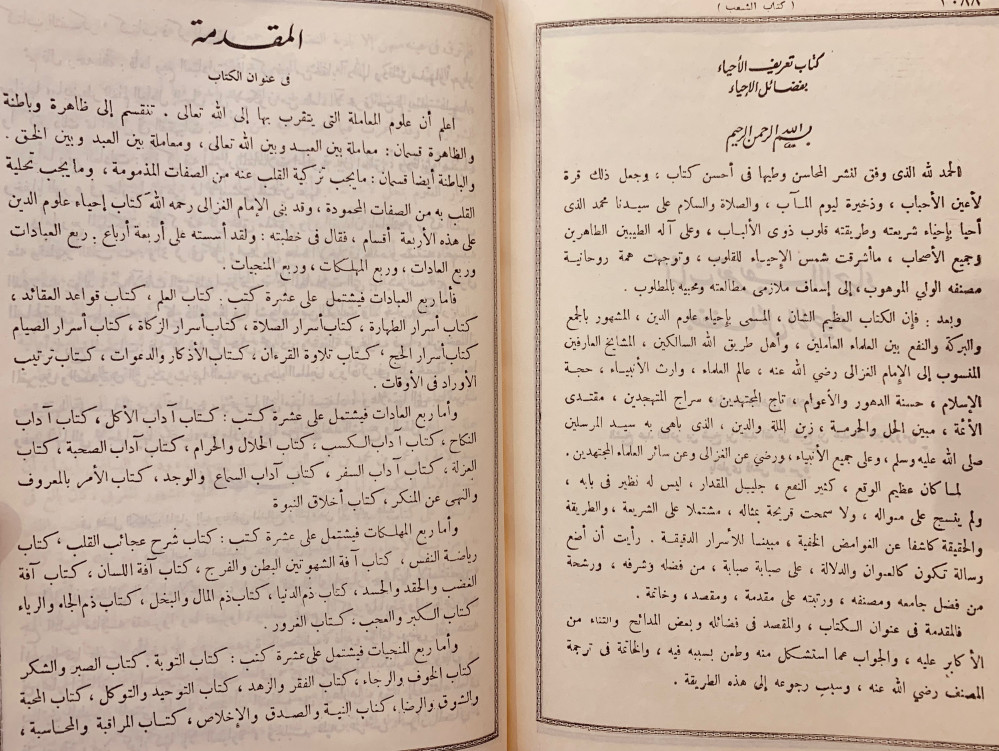 ( كتاب الشعب )
كتاب تعريف الأحياء
بفضائل الإحياء
بسم الله الرحمن الرحيم
الحمد لله الذى وفق لنشر المحاسن وطيها فى أحسن كتاب ، وجعل ذلك قرة
لأعين الأحباب ، وذخيرة ليوم المـآب ، والصلاة والسلام على سيـدنا محمد الذى
أحيا بإحياء شريعته وطريقته قلوب ذوى الألبـاب ، وعلى آله الطيبين الطاهرين
وجميع الأصحاب ، ماأشرقت شمس الإحيـاء للقلوب ، وتوجهت همة روحانية
مصنفه الولي الموهوب ، إلى إسعاف ملازمى مطالعته ومحبيه بالمطلوب .
وبعد : فإن الكتاب العظيم الشان ، المسمى بإحياء علوم الدين ، المشهور بالجمع
والبركة والنفع بين العلماء العاملين ، وأهل طريق الله السالكين ، المشايخ العارفين
المنسوب إلى الإمام الغزالى رضي الله عنه ، عالم العلماء ، وارث الأنبيـاء ، حجـة
الإسلام ، حسنة الدهور والأعوام ، تاج المجتهدين ، سراج المتهجدين ، مقتـدى
الأئمة ، مبين الحل والحرمـة ، زين الملة والدين ، الذى باهى به سيـد المرسلين
صلى الله عليه وسلم ، وعلى جميع الأنبياء ، ورضي عن الغزالى وعن سائر العلماء المجتهدين .
لمـا كان عظيم الوقع ، كثير النفع ، جليـل المقدار ، ليس له نظير فى بابه ،
ولم ينسج على منواله ، ولا سمحت قريحة بمثاله ، مشتملا على الشريعة ، والطريقة
والحقيقة كاشفا عن الغوامض الخفية ، مبينـا للأسرار الدقيقـة . رأيت أن أضع
رسالة تـكون كالعنوان والدلالة ، على صبابة صبابة ، من فضله وشرفه ، ورشحة
من فضل جامعه ومصنفه ، ورتبته على مقدمة ، ومقصد ، وخاتمة .
فالمقدمة فى عنوان الـكتاب ، والمقصد فى فضائله وبعض المدائح والثناء من
الأكابر عليه ، والجواب عما استشكل منه وطعن بسببه فيه ، والخاتمة فى ترجمة
المصنف رضي الله عنه ، وسبب رجوعه إلى هذه الطريقة .
المقدمة
فى عنوان الكتاب
اعلم أن علوم المعاملة التى يتقرب بها إلى الله تعالى . تنقسم إلى ظاهرة وباطنة
والظاهرة قسمان : معاملة بين العبـد وبين الله تعالى ، ومعاملة بين العبد وبين الخلق .
والباطنة أيضا قسمان : مايجب تزكية القلب عنه من الصفات المذمومة ، ومايجب تحلية
القلب به من الصفات المحمودة ، وقد بنى الإمام الغزالى رحمه الله كتاب إحياء علوم الدين
على هذه الأربعة أقسام ، فقال فى خطبته : ولقد أسسته على أربعة أرباع . ربع العبادات
وربع العادات ، وربع المهلـكات ، وربع المنجيات .
فأما ربع العبادات فيشتمل على عشرة كتب . كتاب العلم ، كتاب قواعد العقائد ،
كتاب أسرار الطهارة ، كتاب أسرار الصلاة ، كتاب أسرار الزكاة ، كتاب أسرار الصيام
كتاب أسرار الحج ، كتاب تلاوة القرءان ، كتاب الأذكار والدعوات ، كتاب ترتيب
الأوراد فى الأوقات .
وأما ربع العادات فيشتمل على عشرة كتب : كتاب آداب الأكل ، كتاب آداب
النكاح ، كتاب آداب الـكسب ، كتاب الحلال والحرام ، كتاب آداب الصحبة ، كتاب
العزلة ، كتاب آداب السفر ، كتاب آداب السماع والوجد ، كتاب الأمر بالمعروف
والنهى عن المنكر ، كتاب أخلاق النبوة
وأما ربع المهلـكات فيشتمل على عشرة كتب : كتاب شرح عجائب القلب ، كتاب
رياضة النفس ، كتاب آفة الشهوتين البطن والفرج ، كتاب آفة اللسان ، كتاب آفة
الغضب والحقد والحسد ، كتاب ذم الدنيا ، كتاب ذم المال والبخل ، كتاب ذم الجاه والرياء
كتاب الكبر والعجب ، كتاب الغرور .
وأما ربع المنجيات فيشتمل على عشرة كتب : كتاب التوبة . كتاب الصبر والشكر
كتاب الخوف والرجاء ، كتاب الفقر والزهد ، كتاب التوحيد والتوكل ، كتاب المحبة
والشوق والرضا ، كتاب النية والصدق والإخلاص ، كتـاب المراقبة والمحاسبة ،